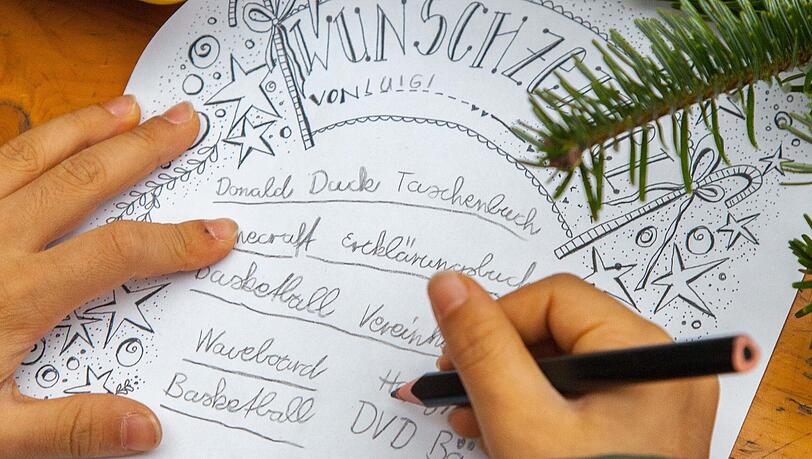 WUNSCHZE
VON LUIGI
Donald Duck Taschenbuch
necraft Ercklärungsbuch
Basketball Verein
Waveboard
Basketball DVD